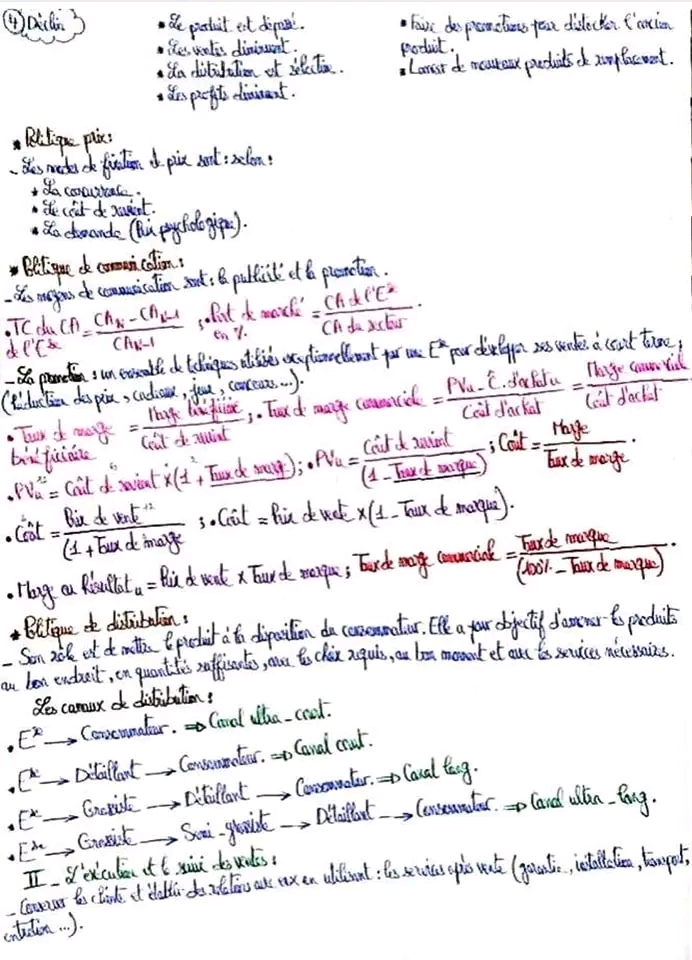 ④ Déclin
• Le produit est dépassé.
• Les ventes diminuent.
• La distribution est sélective.
• Les profits diminuent.
• Faire des promotions pour déstocker l'ancien
produit.
• Lancer de nouveaux produits de remplacement.
* Politique prix :
- Les modes de fixation de prix sont : selon :
* La concurrence.
* Le coût de revient.
* La demande (Prix psychologique).
* Politique de communication :
- Les moyens de communication sont : la publicité et la promotion.
• TC du CA de l'Ese = (CA N - CA N-1) / CA N-1 ; • Part de marché en % = CA de l'Ese / CA du secteur .
- La promotion : un ensemble de techniques utilisés exceptionnellement par une Ese pour développer ses ventes à court terme ;
(Réduction des prix, cadeaux, jeux, concours...).
• Taux de marge bénéficiaire = Marge bénéficiaire / Coût de revient ; • Taux de marge commerciale = (PVu - C. d'achat u) / Coût d'achat = Marge commerciale / Coût d'achat
• PVu = Coût de revient × (1 + Taux de marge) ; • PVu = Coût de revient / (1 - Taux de marque) ; Coût = Marge / Taux de marge .
• Coût = Prix de vente / (1 + Taux de marge ; • Coût = Prix de vente × (1 - Taux de marque).
• Marge ou Résultat u = Prix de vente × Taux de marque ; Taux de marge commerciale = Taux de marque / (100% - Taux de marque) .
* Politique de distribution :
- Son rôle est de mettre le produit à la disposition du consommateur. Elle a pour objectif d'amener les produits
au bon endroit, en quantités suffisantes, avec les choix requis, au bon moment et avec les services nécessaires.
Les canaux de distribution :
• Ese → Consommateur. ⇒ Canal ultra-court.
• Ese → Détaillant → Consommateur. ⇒ Canal court.
• Ese → Grossiste → Détaillant → Consommateur. ⇒ Canal long.
• Ese → Grossiste → Semi-grossiste → Détaillant → Consommateur. ⇒ Canal ultra-long.
II - L'exécution et le suivi des ventes :
- Conserver les clients et établir des relations avec eux en utilisant : les services après vente (garantie, installation, transport,
entretien ...).